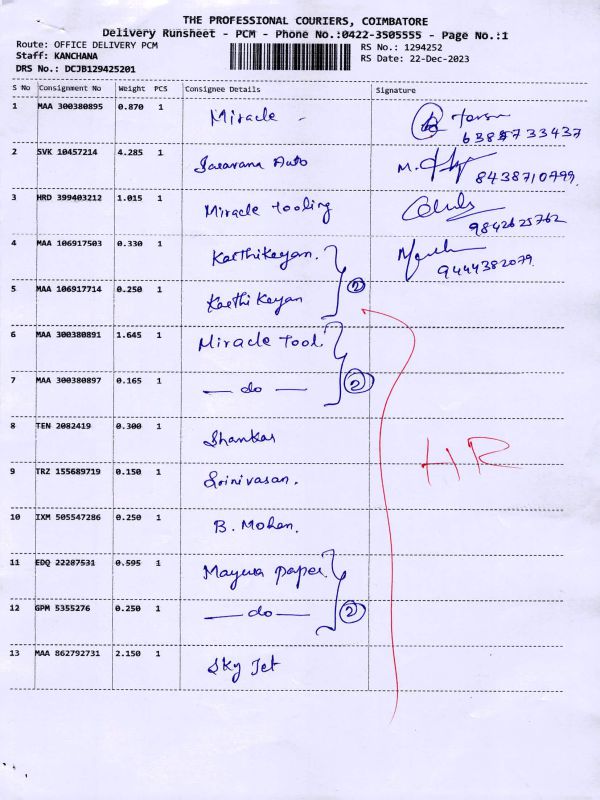 THE PROFESSIONAL COURIERS, COIMBATORE
Delivery Runsheet - PCM - Phone No.:0422-3505555 - Page No.:1
Route: OFFICE DELIVERY PCM
Staff: KANCHANA
DRS No.: DCJB129425201
RS No.: 1294252
RS Date: 22-Dec-2023
S No Consignment No Weight PCS Consignee Details Signature
1 MAA 300380895 0.870 1 Miracle -
63857 33437
2 SVK 10457214 4.285 1 Saravana Auto M.
8438710799.
3 HRD 399403212 1.015 1 Miracle tooling
9842625762
4 MAA 106917503 0.330 1 Karthikeyan.
9444382079.
5 MAA 106917714 0.250 1 Karthikeyan
2
6 MAA 300380891 1.645 1 Miracle Tool.
7 MAA 300380897 0.165 1 — do —
2
8 TEN 2082419 0.300 1 Shankar
HR
9 TRZ 155689719 0.150 1 Srinivasan.
10 IXM 505547286 0.250 1 B. Mohan.
11 EDQ 22287531 0.595 1 Mayura paper.
12 GPM 5355276 0.250 1 — do —
2
13 MAA 862792731 2.150 1 Sky Jet